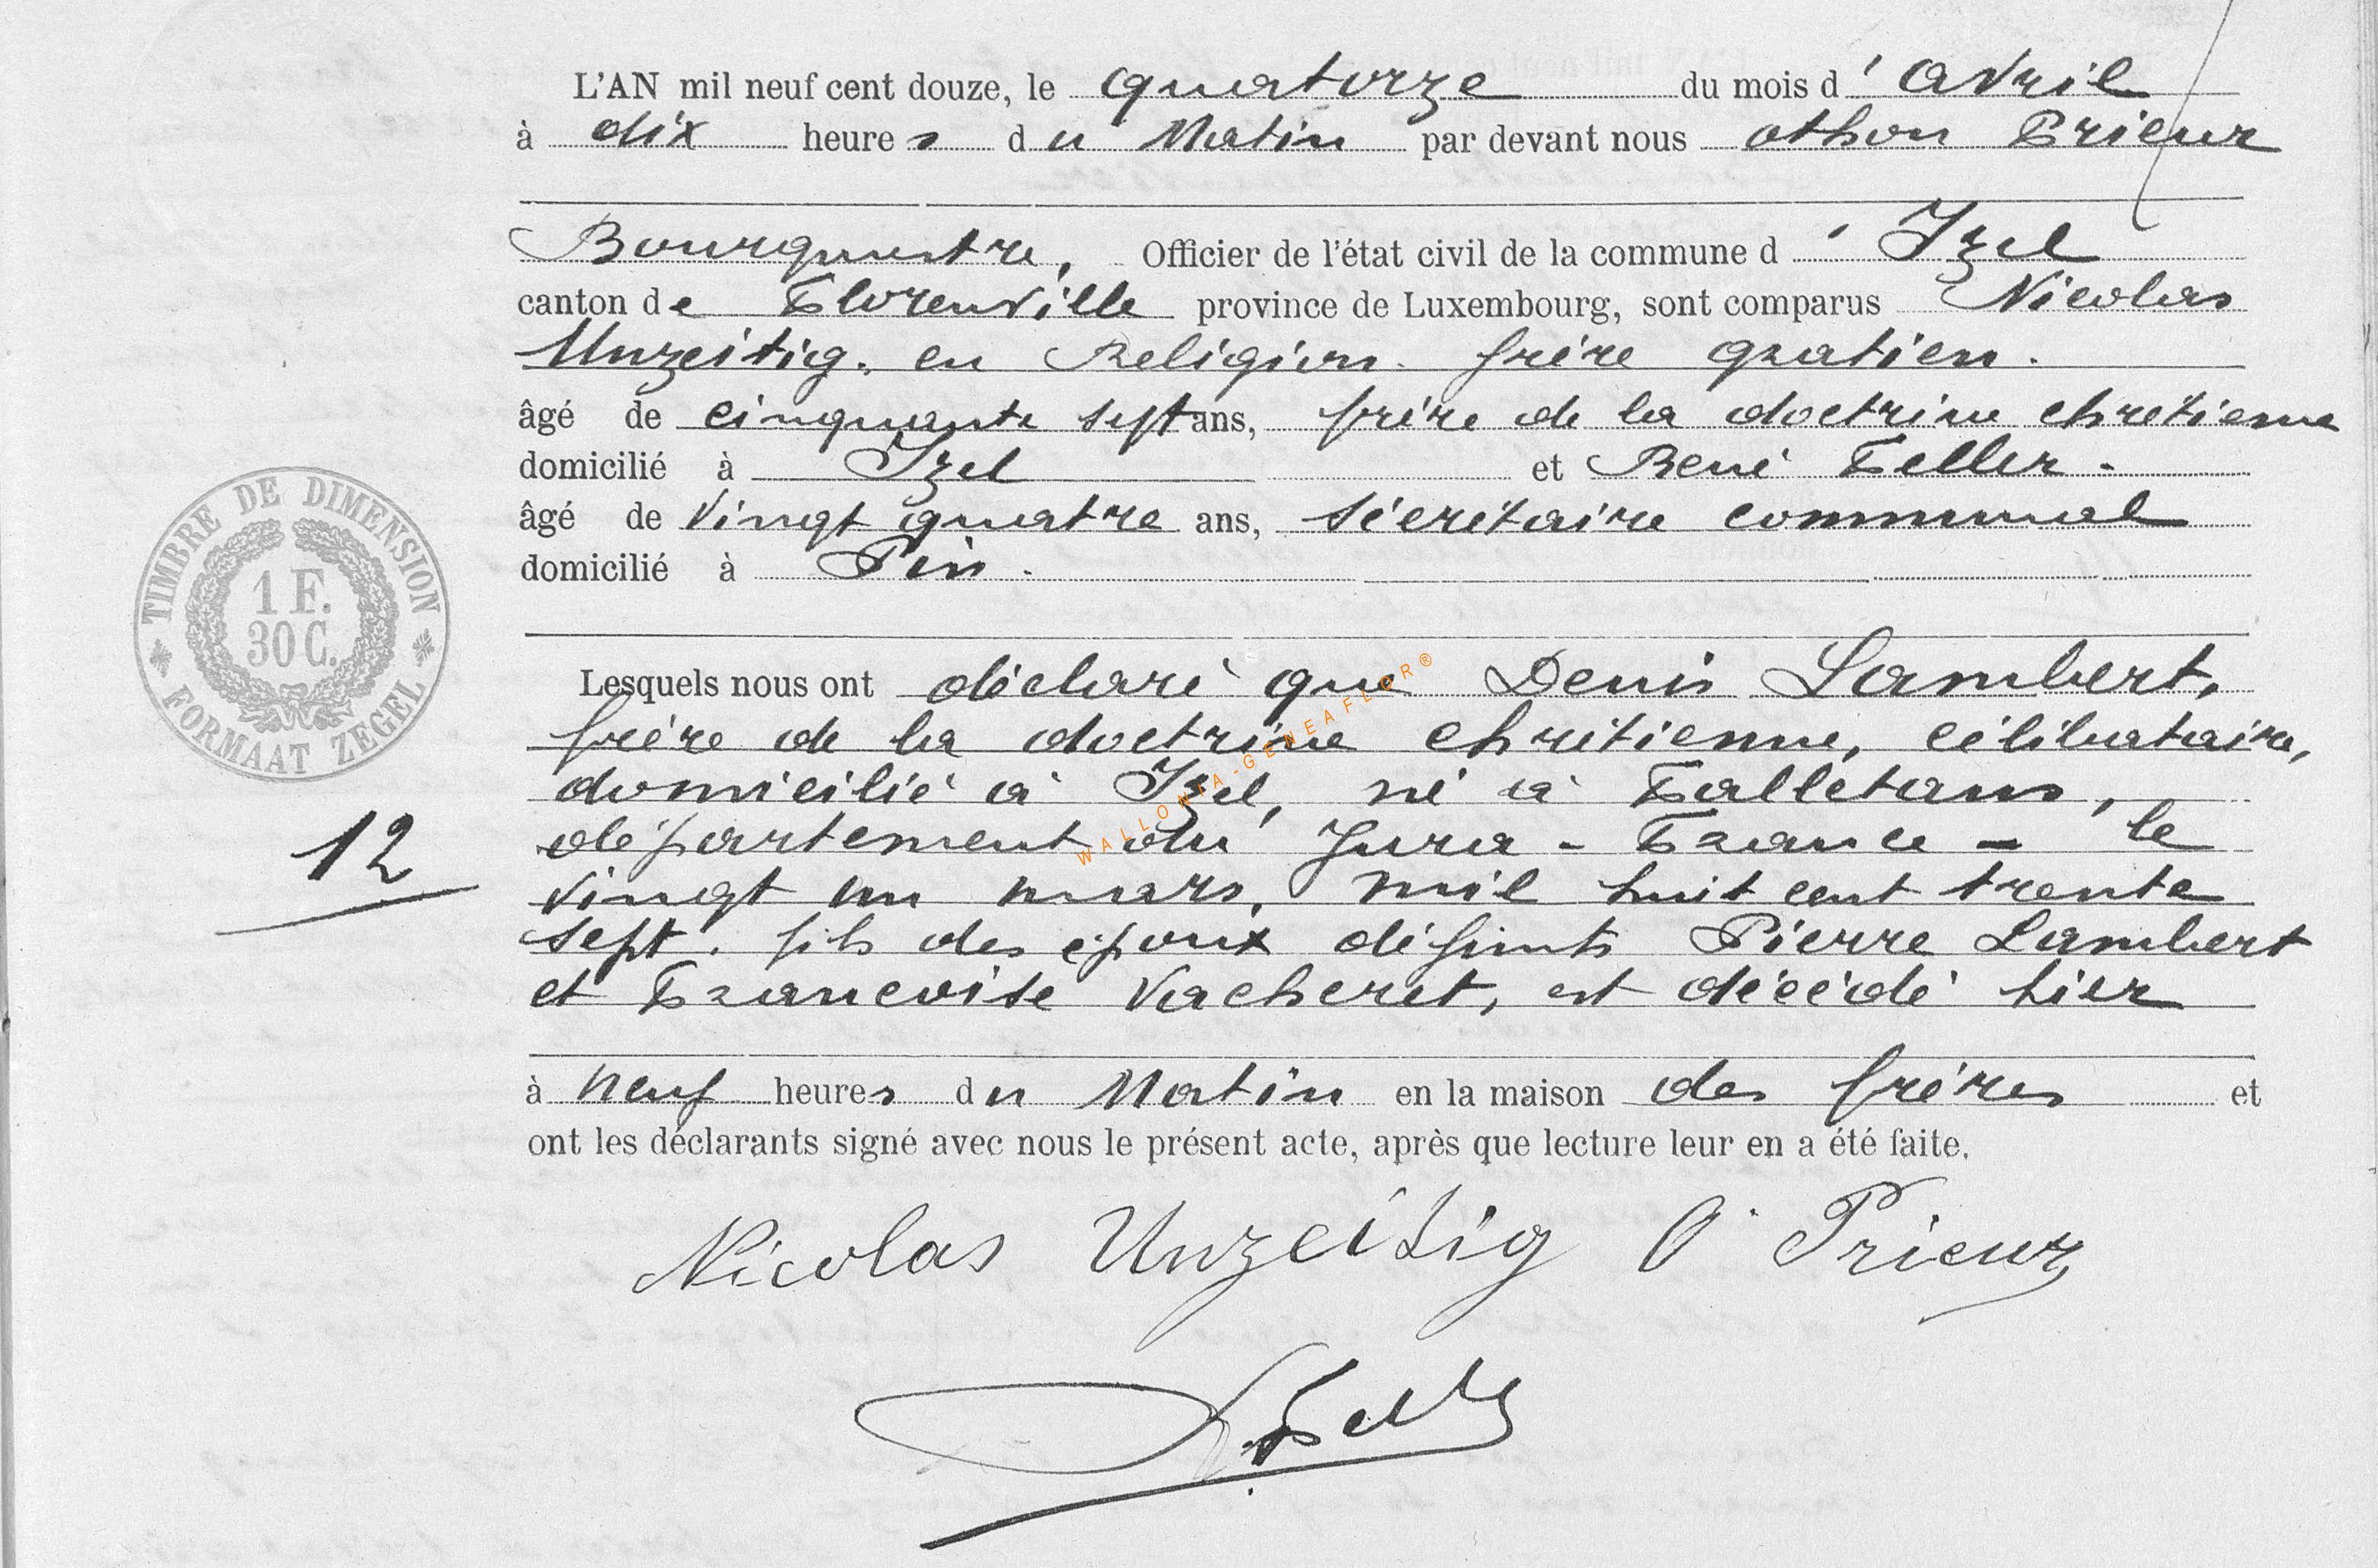 L'AN mil neuf cent douze, le quatorze du mois d'avril
à dix heures du Matin par devant nous othon Prieur
Bourgmestre, Officier de l'état civil de la commune d'Izel
canton de Florenville province de Luxembourg, sont comparus Nicolas
Unzeitig. en Religion. frère gratien.
âgé de cinquante sept ans, frère de la doctrine chretienne
domicilié à Izel et René Feller.
âgé de vingt quatre ans, sécrétaire communal
domicilié à Pin.
TIMBRE DE DIMENSION
1 F.
30 C.
FORMAAT ZEGEL
Lesquels nous ont déclaré que Denis Lambert,
frère de la doctrine chrétienne, célibataire,
domicilié à Izel, né à Falletans,
département du Jura - France - le
12
vingt un mars, mil huit cent trente
sept. fils des époux défunts Pierre Lambert
et Francoise Vacheret, est décédé hier
à neuf heures du Matin en la maison des frères et
ont les déclarants signé avec nous le présent acte, après que lecture leur en a été faite.
Nicolas Unzeitig O. Prieur
R. Feller
WALLONIA-GENEAFLOR®